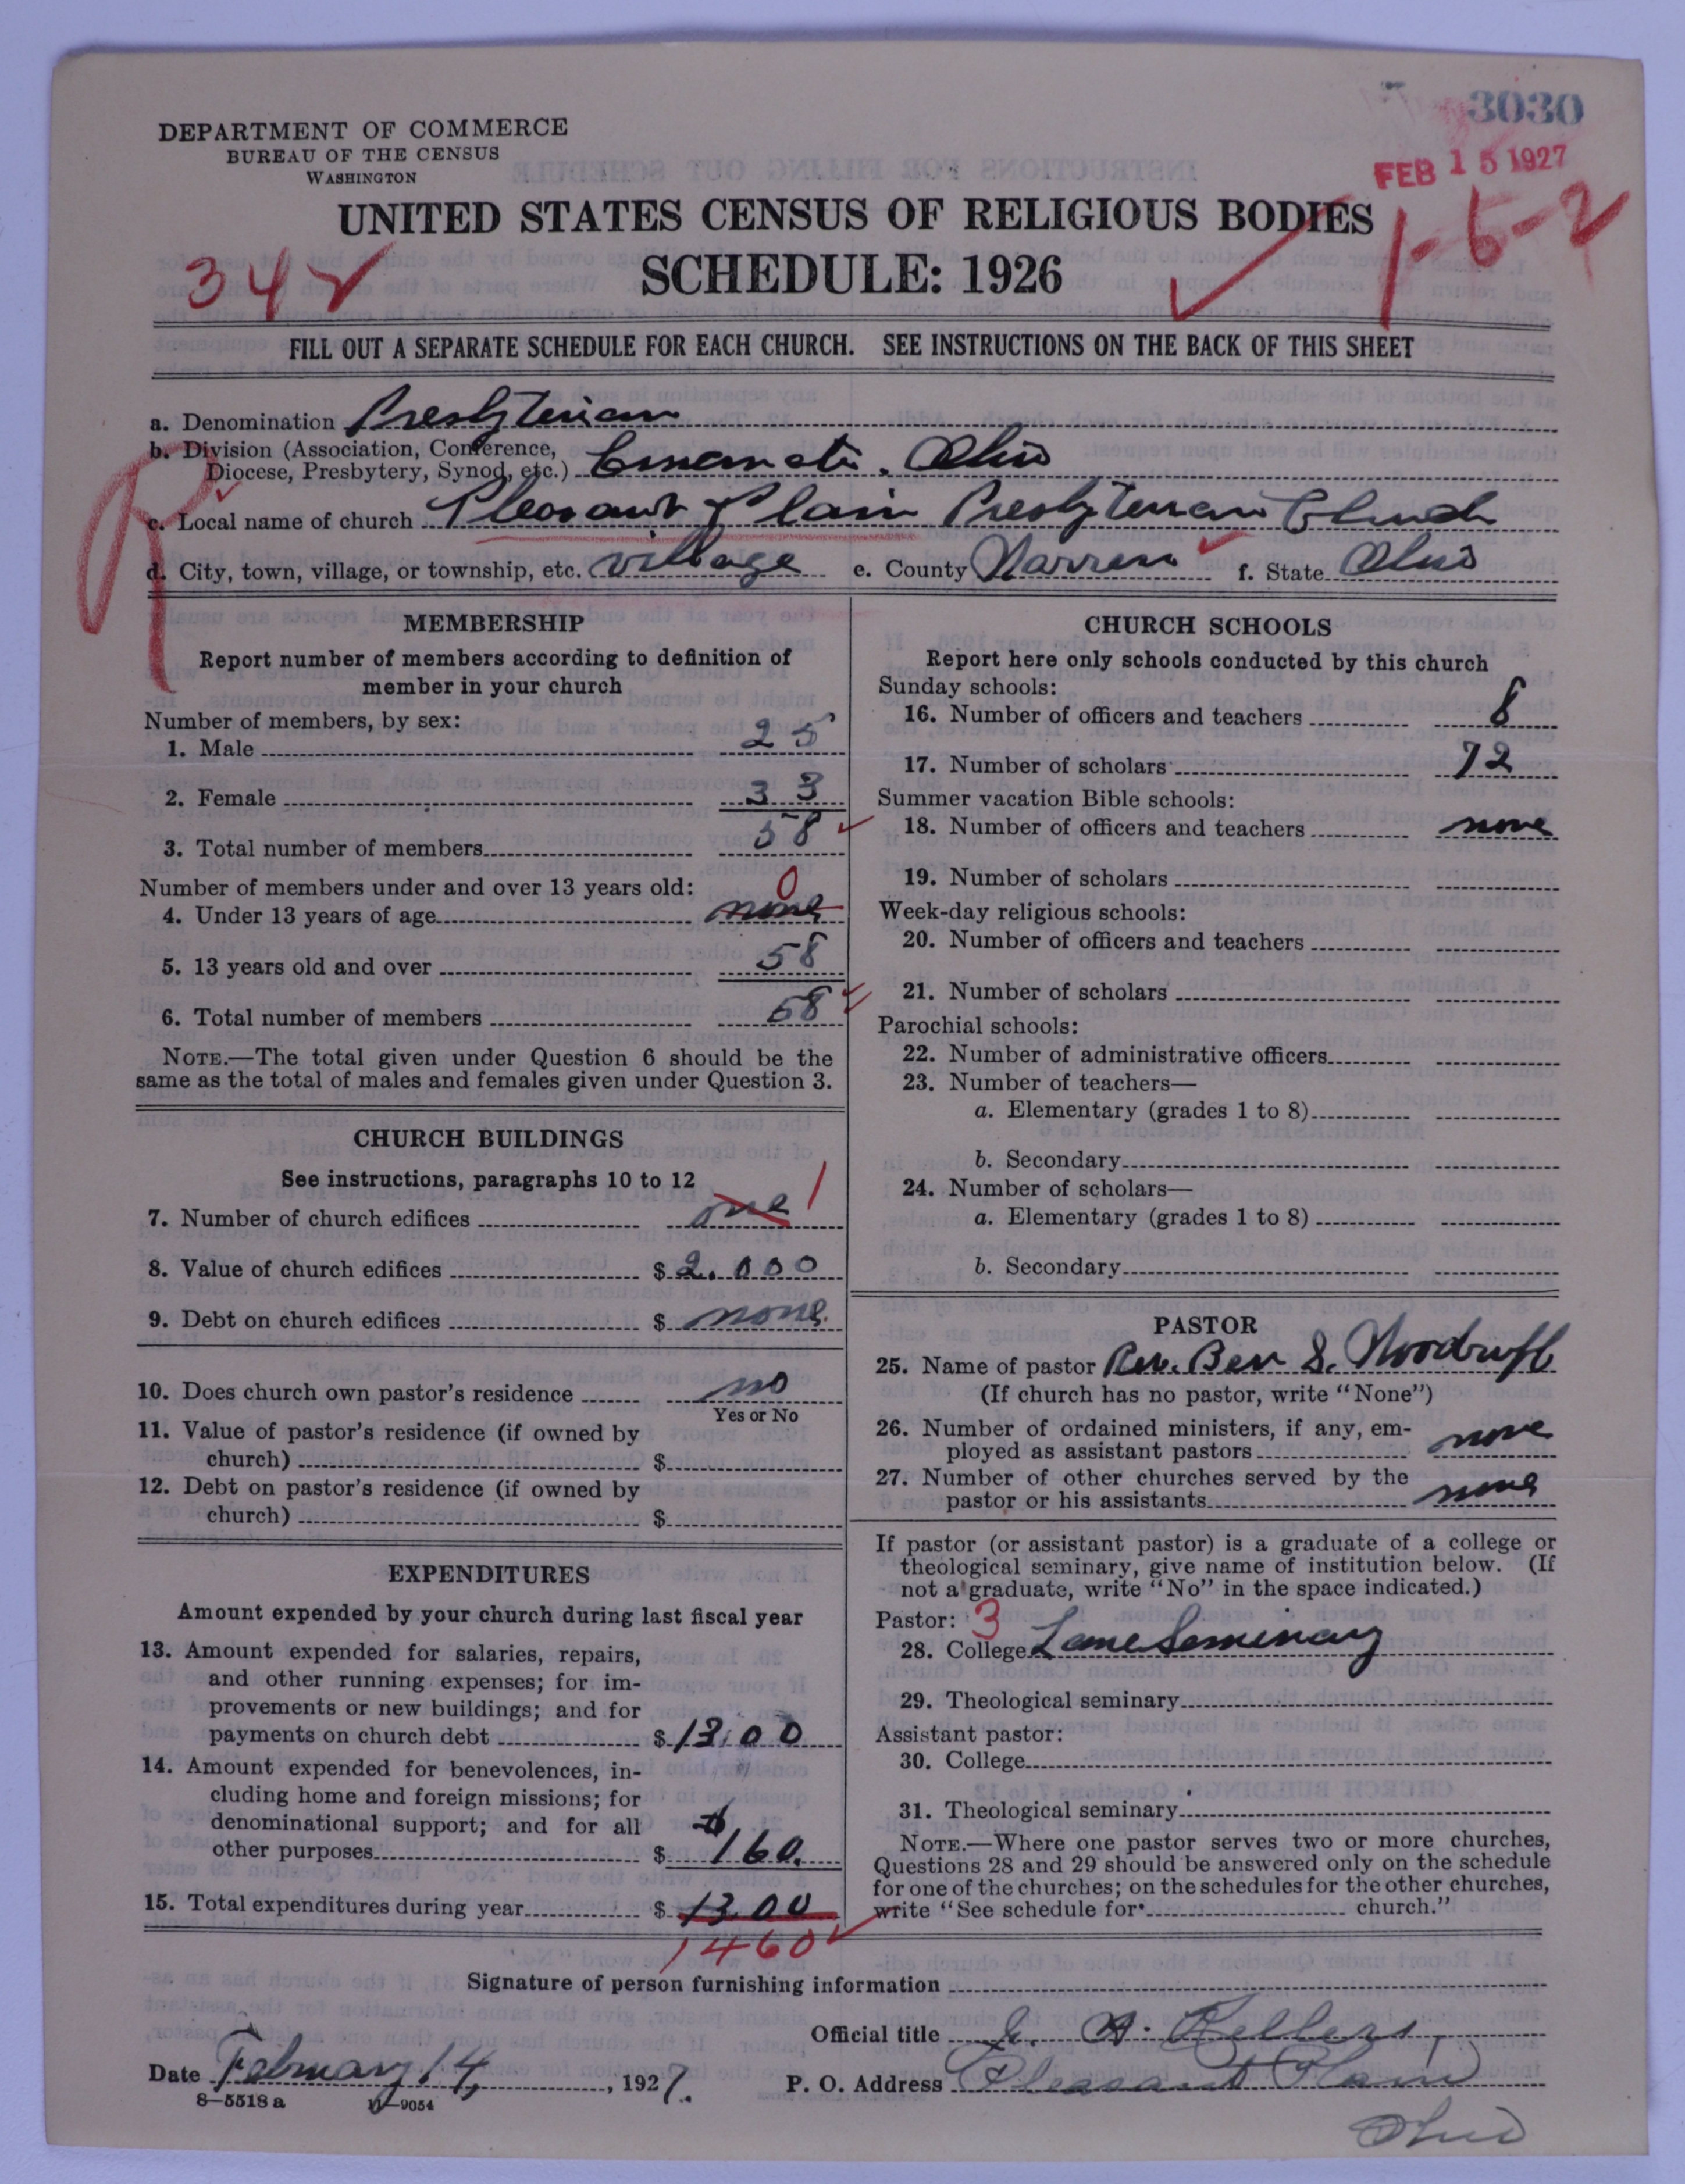 3030
DEPARTMENT OF COMMERCE
BUREAU OF THE CENSUS
WASHINGTON
FEB 15 1927
UNITED STATES CENSUS OF RELIGIOUS BODIES
1-6-2
342
SCHEDULE: 1926
FILL OUT A SEPARATE SCHEDULE FOR EACH CHURCH. SEE INSTRUCTIONS ON THE BACK OF THIS SHEET
a. Denomination Presbyterian
b. Division (Association, Conference,
Diocese, Presbytery, Synod, etc.) Cincinnati, Ohio
c. Local name of church Pleasant Plain Presbyterian Church
d. City, town, village, or township, etc. village e. County Warren f. State Ohio
MEMBERSHIP
Report number of members according to definition of
member in your church
Number of members, by sex:
1. Male 25
2. Female 33
3. Total number of members 58
Number of members under and over 13 years old:
0
4. Under 13 years of age none
5. 13 years old and over 58
6. Total number of members 58
NOTE.—The total given under Question 6 should be the
same as the total of males and females given under Question 3.
CHURCH BUILDINGS
See instructions, paragraphs 10 to 12
7. Number of church edifices one 1
8. Value of church edifices $ 2.000
9. Debt on church edifices $ none.
10. Does church own pastor's residence no
Yes or No
11. Value of pastor's residence (if owned by
church) $
12. Debt on pastor's residence (if owned by
church) $
EXPENDITURES
Amount expended by your church during last fiscal year
13. Amount expended for salaries, repairs,
and other running expenses; for im-
provements or new buildings; and for
payments on church debt $ 13.00
14. Amount expended for benevolences, in-
cluding home and foreign missions; for
denominational support; and for all
other purposes $ 160.
15. Total expenditures during year $ 13.00
1460
CHURCH SCHOOLS
Report here only schools conducted by this church
Sunday schools:
16. Number of officers and teachers 8
17. Number of scholars 72
Summer vacation Bible schools:
18. Number of officers and teachers none
19. Number of scholars
Week-day religious schools:
20. Number of officers and teachers
21. Number of scholars
Parochial schools:
22. Number of administrative officers
23. Number of teachers—
a. Elementary (grades 1 to 8)
b. Secondary
24. Number of scholars—
a. Elementary (grades 1 to 8)
b. Secondary
PASTOR
25. Name of pastor Rev. Ben S. Woodruff
(If church has no pastor, write "None")
26. Number of ordained ministers, if any, em-
ployed as assistant pastors none
27. Number of other churches served by the
pastor or his assistants none
If pastor (or assistant pastor) is a graduate of a college or
theological seminary, give name of institution below. (If
not a graduate, write "No" in the space indicated.)
Pastor: 3
28. College Lane Seminary
29. Theological seminary
Assistant pastor:
30. College
31. Theological seminary
NOTE.—Where one pastor serves two or more churches,
Questions 28 and 29 should be answered only on the schedule
for one of the churches; on the schedules for the other churches,
write "See schedule for church."
Signature of person furnishing information
Official title A. Kellers,
Date February 14, 1927. P. O. Address Pleasant Plain
8—5518 a 11—9054
Ohio